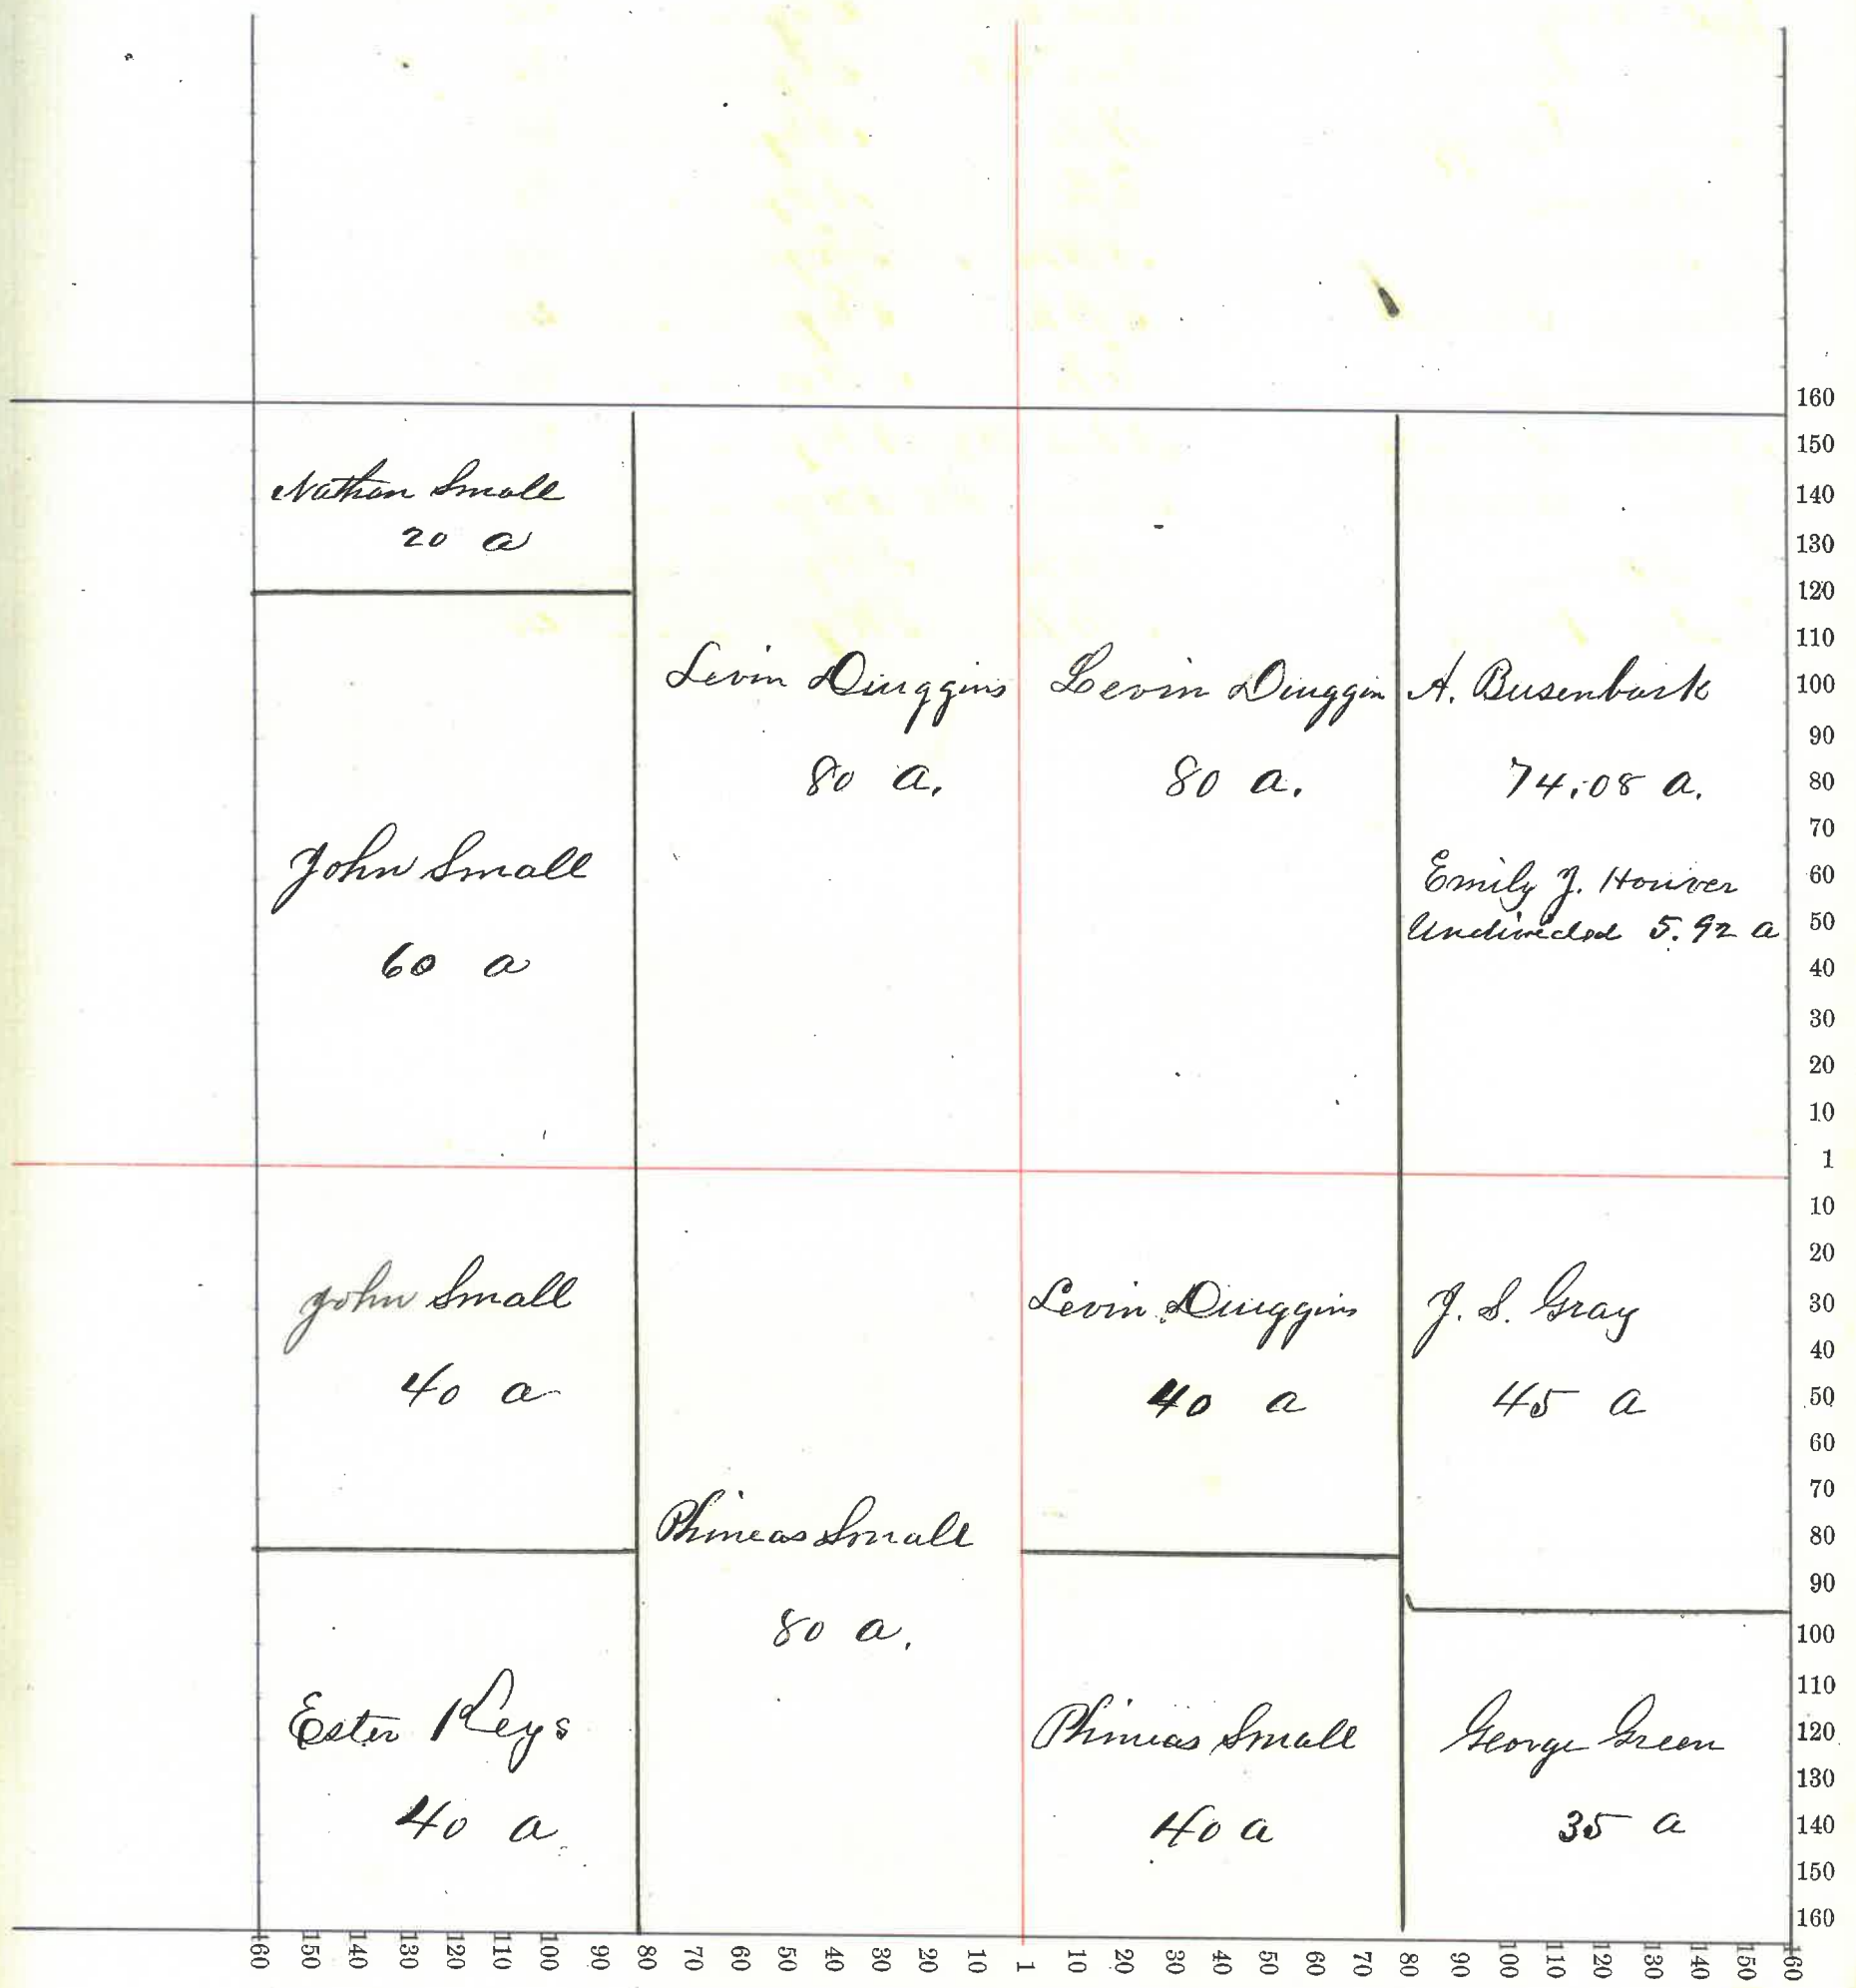 Nathan Small
20 a
John Small
60 a
Levin Duggins
80 a.
Levin Duggin
80 a.
A. Busenbark
74.08 a.
Emily J. Hoover
Undivided 5.92 a
John Small
40 a
Ester Keys
40 a
Phineas Small
80 a.
Levin Duggins
40 a
Phineas Small
40 a
J. S. Gray
45 a
George Green
35 a
160
150
140
130
120
110
100
90
80
70
60
50
40
30
20
10
1
10
20
30
40
50
60
70
80
90
100
110
120
130
140
150
160
160 150 140 130 120 110 100 90 80 70 60 50 40 30 20 10 1 10 20 30 40 50 60 70 80 90 100 110 120 130 140 150 160